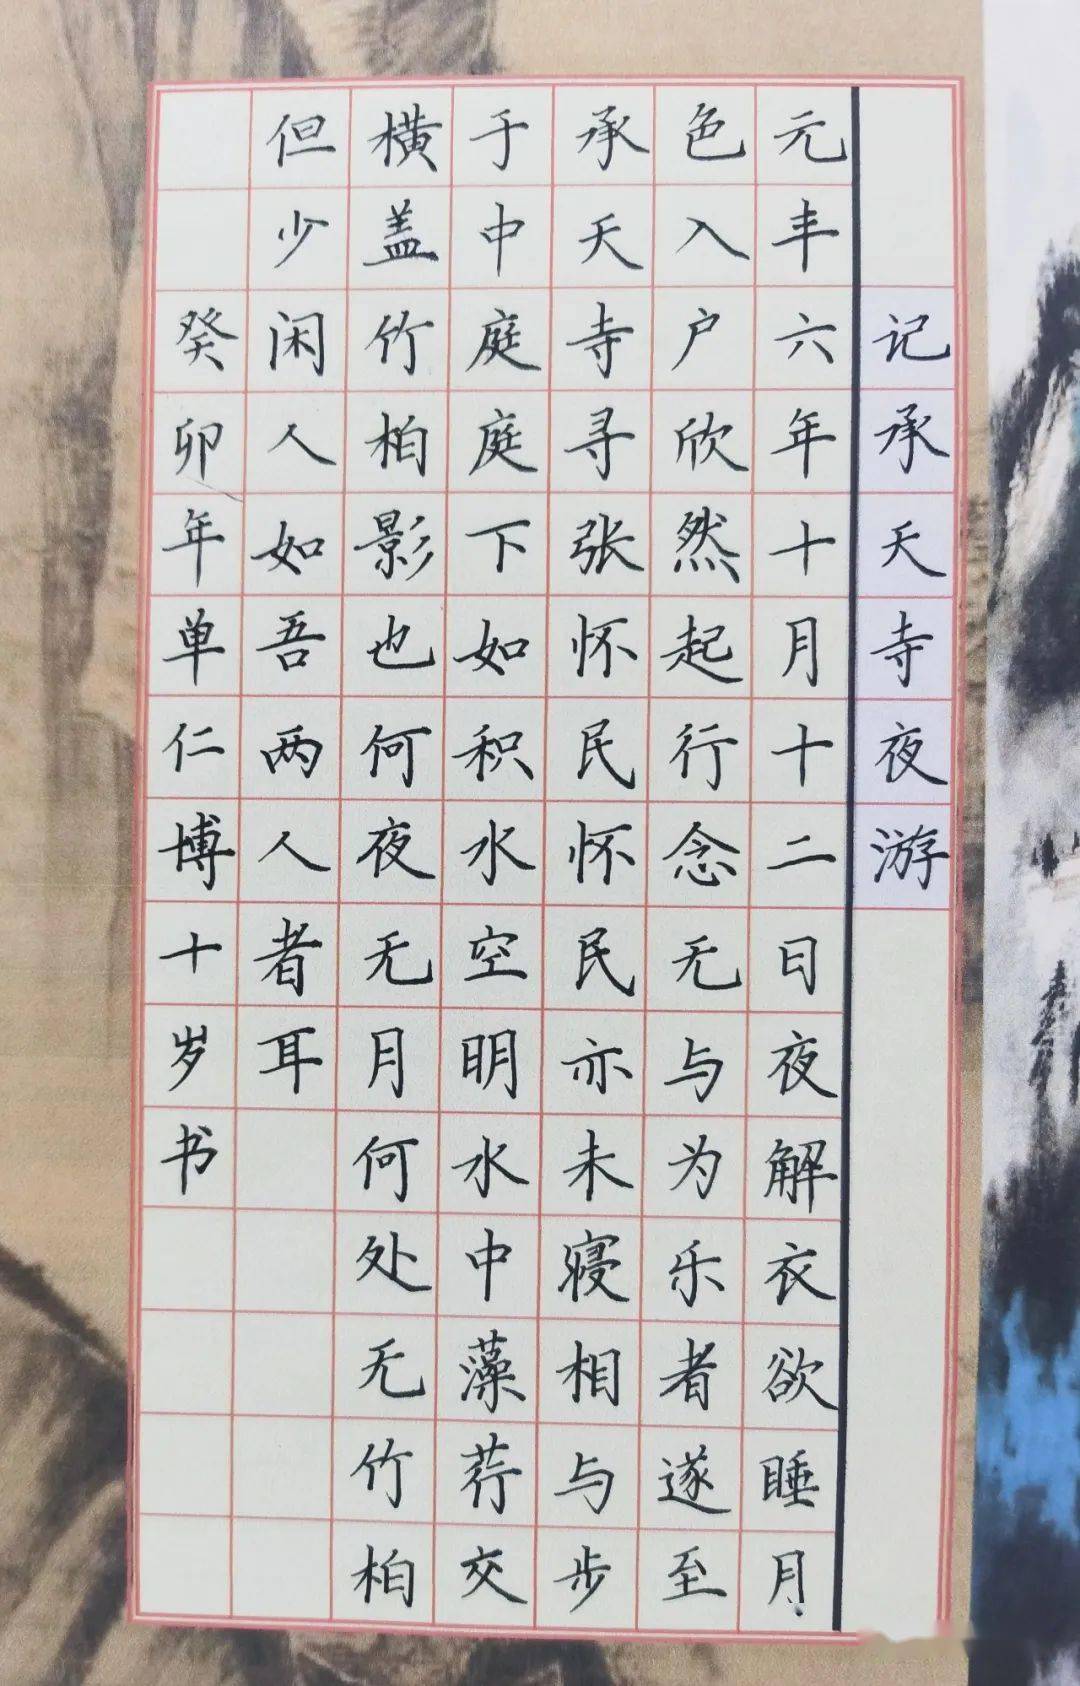 记承天寺夜游
元丰六年十月十二日夜解衣欲睡月
色入户欣然起行念无与为乐者遂至
承天寺寻张怀民怀民亦未寝相与步
于中庭庭下如积水空明水中藻荇交
横盖竹柏影也何夜无月何处无竹柏
但少闲人如吾两人者耳
癸卯年单仁博十岁书